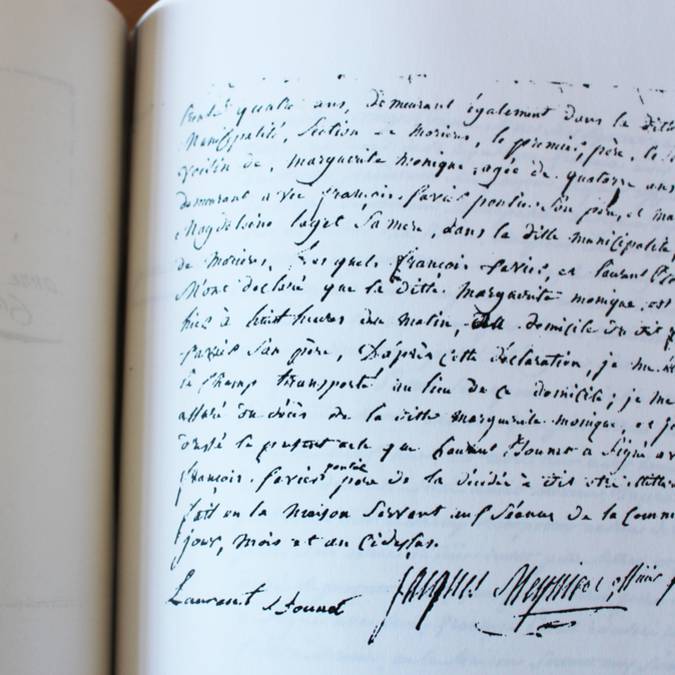 trente quatre ans, demeurant également dans la ditte
Municipalité, Section de morieres, le premier, père, le
voisin de, marguerite monique, agée de quatorze ans
demeurant avec françois farics pontié Son père, et
Magdeleine Sa mere, dans la ditte municipalité,
de morieres, Lesquels françois farics, et laurent
M'ont declaré que la ditte marguerite monique est
hier à huit heures du matin, au domicile du dit
farics Son père, D'après cette déclaration, je me
le champ transporté au lieu de ce domicile; je me
assuré du décès de la ditte marguerite monique, et
dressé le present acte que Laurent a Signé
françois farics pontié père de la décédée a dit
fait en la maison Servant aux Séances de la
jour, mois et an cidessus.
Laurent Jacques officier